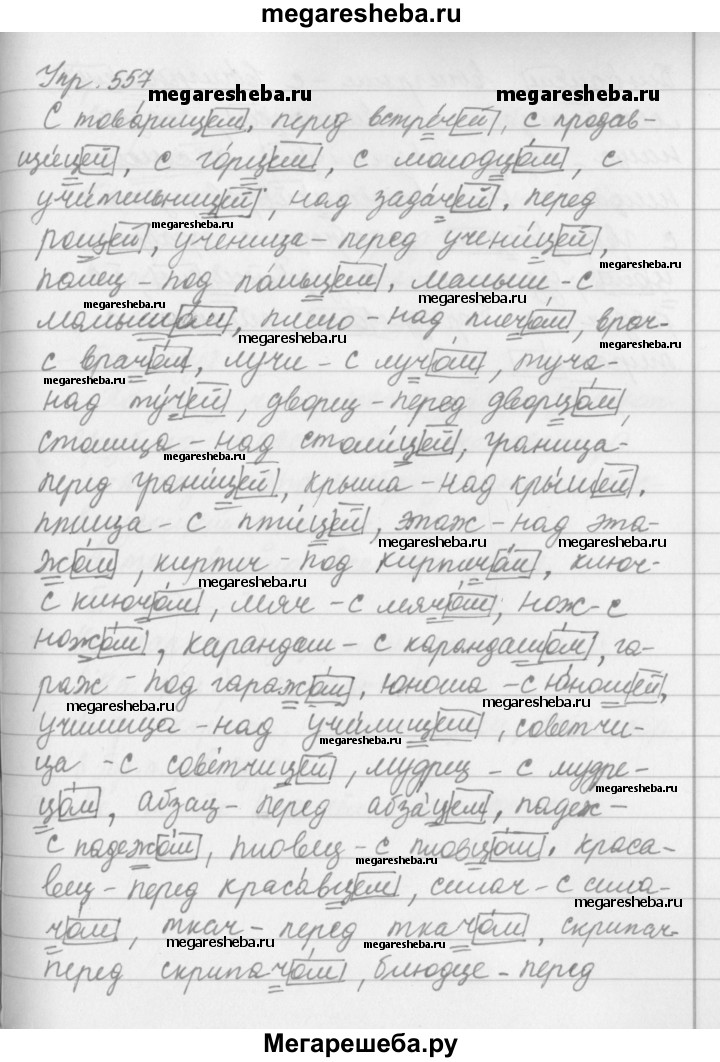 megaresheba.ru
Упр. 557
megaresheba.ru megaresheba.ru
С товарищем, перед встречей, с продав-
щицей, с горцем, с молодцом, с
учительницей, над задачей, перед
megaresheba.ru
рощей, ученица - перед ученицей,
megaresheba.ru
палец - под пальцем, малыш - с
megaresheba.ru megaresheba.ru
малышом, плечо - над плечом, врач-
megaresheba.ru
с врачом, лучи - с лучом, туча-
megaresheba.ru megaresheba.ru
над тучей, дворец - перед дворцом,
столица - над столицей, граница-
megaresheba.ru
перед границей, крыша - над крышей,
птица - с птицей, этаж - над эта-
megaresheba.ru
жом, кирпич - под кирпичом, ключ-
megaresheba.ru
с ключом, мяч - с мячом, нож - с
ножом, карандаш - с карандашом, га-
раж - под гаражом, юноша - с юношей,
megaresheba.ru megaresheba.ru
училища - над училищем, советчи-
megaresheba.ru
ца - с советчицей, мудрец - с мудре-
цом, абзац - перед абзацем, падеж -
с падежом, пловец - с пловцом, краса-
megaresheba.ru
вец - перед красавцем, силач - с сила-
megaresheba.ru
чом, ткач - перед ткачом, скрипач-
megaresheba.ru megaresheba.ru
перед скрипачом, блюдце - перед
Мегарешеба.ру